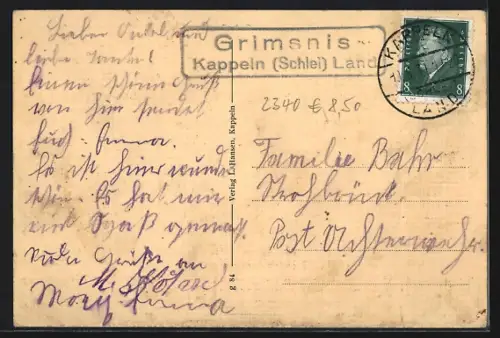 Lieber Onkel und
liebe Tante!
Einen schönen Gruß
von hier sendet
Euch Emma.
Es ist hier wunder
schön. Es hat mir
viel Spaß gemacht.
Viele Grüße an
Emma
Grimsnis
Kappeln (Schlei) Land
KAPPELN
LAND
8 8
2340 € 8,50
Verlag L. Hansen, Kappeln
g 84
Familie Bahr
Strohbrück.
Post Achterwehr.